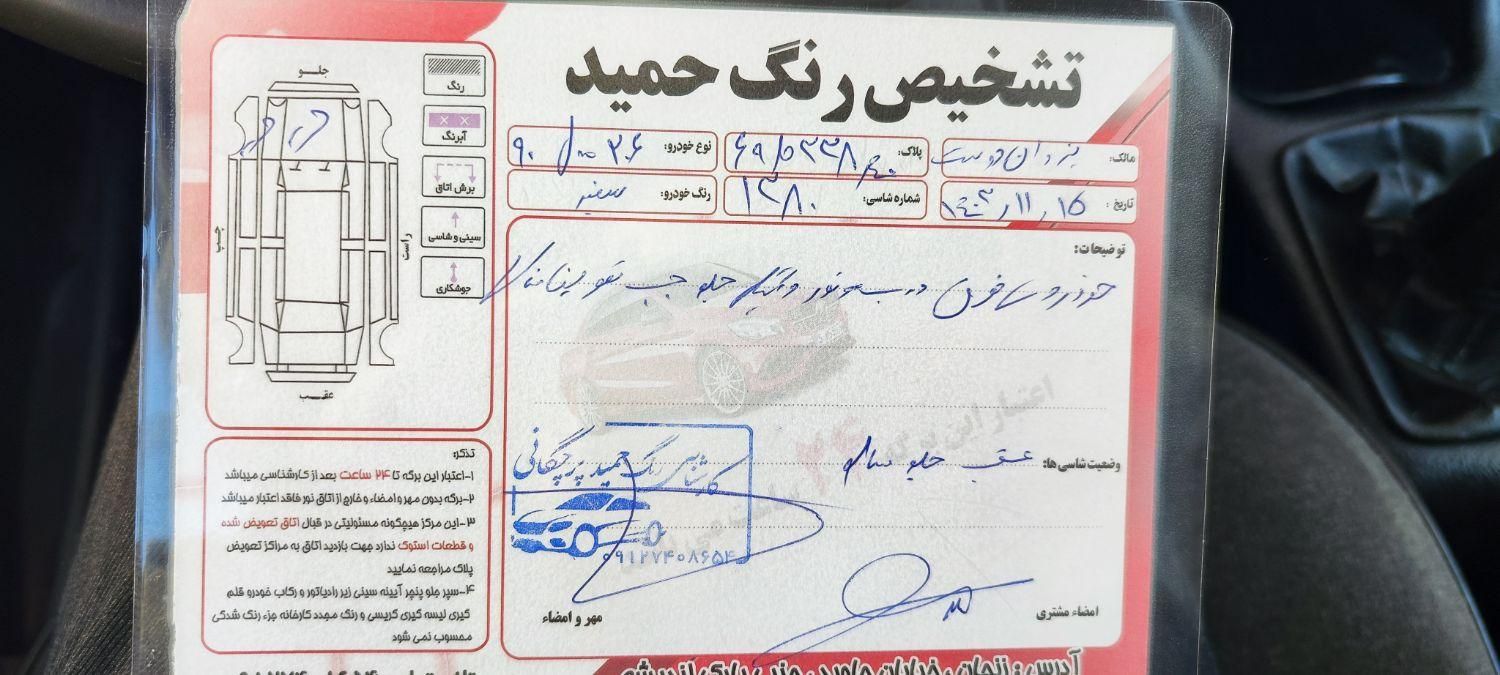 تشخیص رنگ حمید
مالک: یزدان دوست
پلاک:
نوع خودرو:
تاریخ: ۱۴۰۳/۱۱/۱۵
شماره شاسی: ۱۳۸۰
رنگ خودرو: سفید
توضیحات:
درب موتور و گلگیر جلو چپ تعویض
وضعیت شاسی ها: عقب جلو سالم
کارشناسی رنگ حمید پرچگانی
۰۹۱۲۷۴۰۸۶۵۴
مهر و امضاء
امضاء مشتری
جلو
چپ
راست
عقب
رنگ
آبرنگ
برش اتاق
سینی و شاسی
جوشکاری
تذکر:
۱-اعتبار این برگه تا ۲۴ ساعت بعد از کارشناسی میباشد
۲-برگه بدون مهر و امضاء و خارج از اتاق نور فاقد اعتبار میباشد
۳-این مرکز هیچگونه مسئولیتی در قبال اتاق تعویض شده
و قطعات استوک ندارد جهت بازدید اتاق به مراکز تعویض
پلاک مراجعه نمایید
۴-سپر جلو پنجر آیینه سینی زیر رادیاتور و رکاب خودرو قلم
گیری لیسه گیری گریسی و رنگ مجدد کارخانه جزء رنگ شدگی
محسوب نمی شود